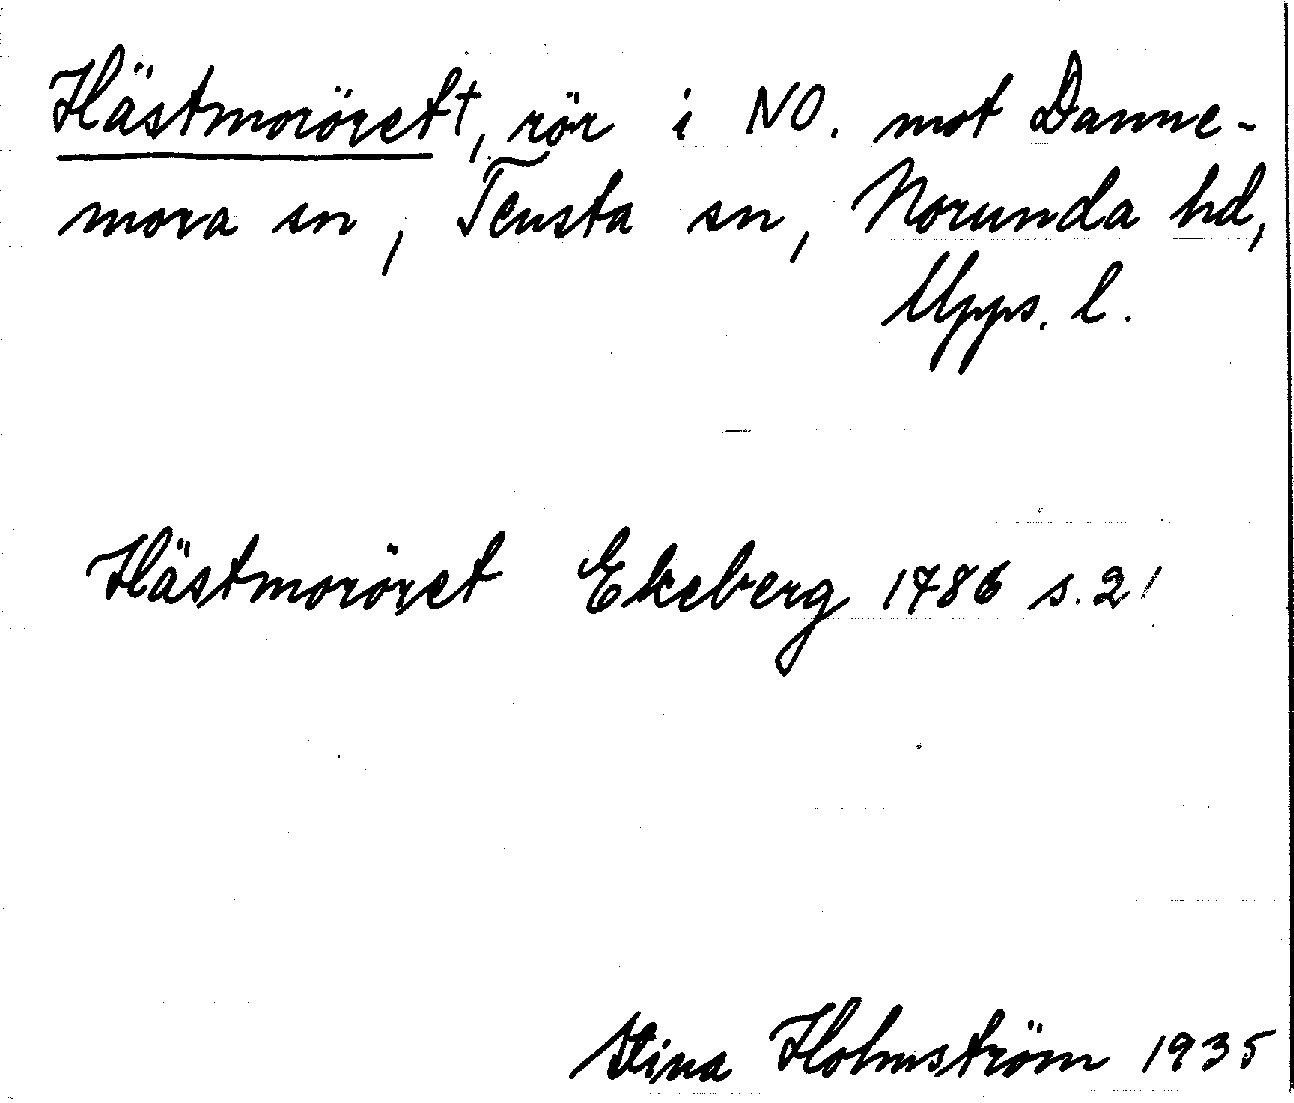 Hästmoröret†, rör i NO. mot Danne-
mora sn, Tensta sn, Norunda hd,
Upps. l.
Hästmoröret Ekeberg 1786 s. 21
Stina Holmström 1935